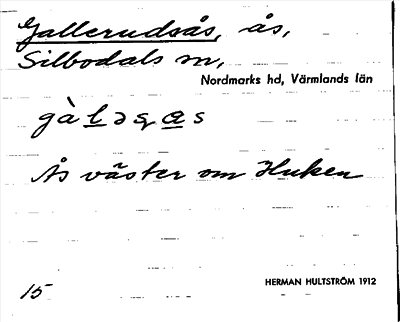 Gallerudsås, ås,
Silbodals sn,
Nordmarks hd, Värmlands län
Ås väster om Huken
15
HERMAN HULTSTRÖM 1912